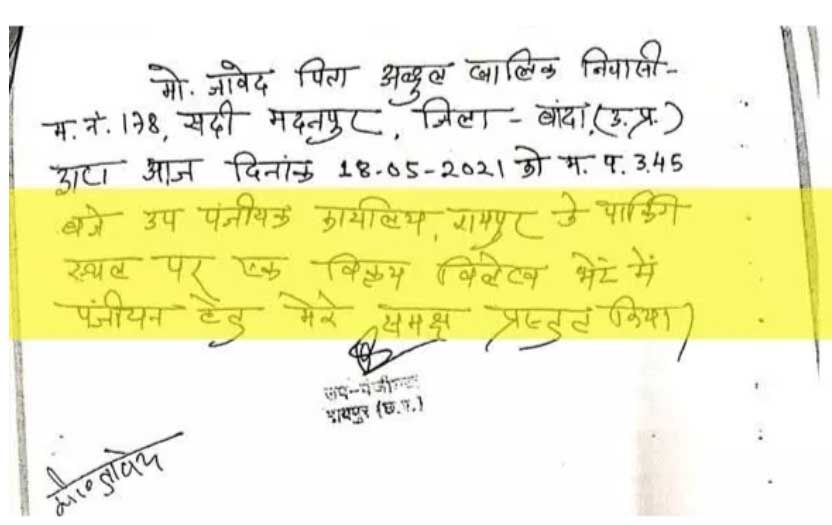 मो. जावेद पिता अब्दुल खालिक निवासी-
म. नं. 178, सदी मदनपुर, जिला - बांदा, (उ.प्र.)
द्वारा आज दिनांक 18-05-2021 को म. प. 3.45
बजे उप पंजीयक कार्यालय, रायपुर के पार्किंग
स्थल पर एक विक्रय विलेख भेंट में
पंजीयन हेतु मेरे समक्ष प्रस्तुत किया।
उप-पंजीयक
रायपुर (छ.ग.)
मो० जावेद